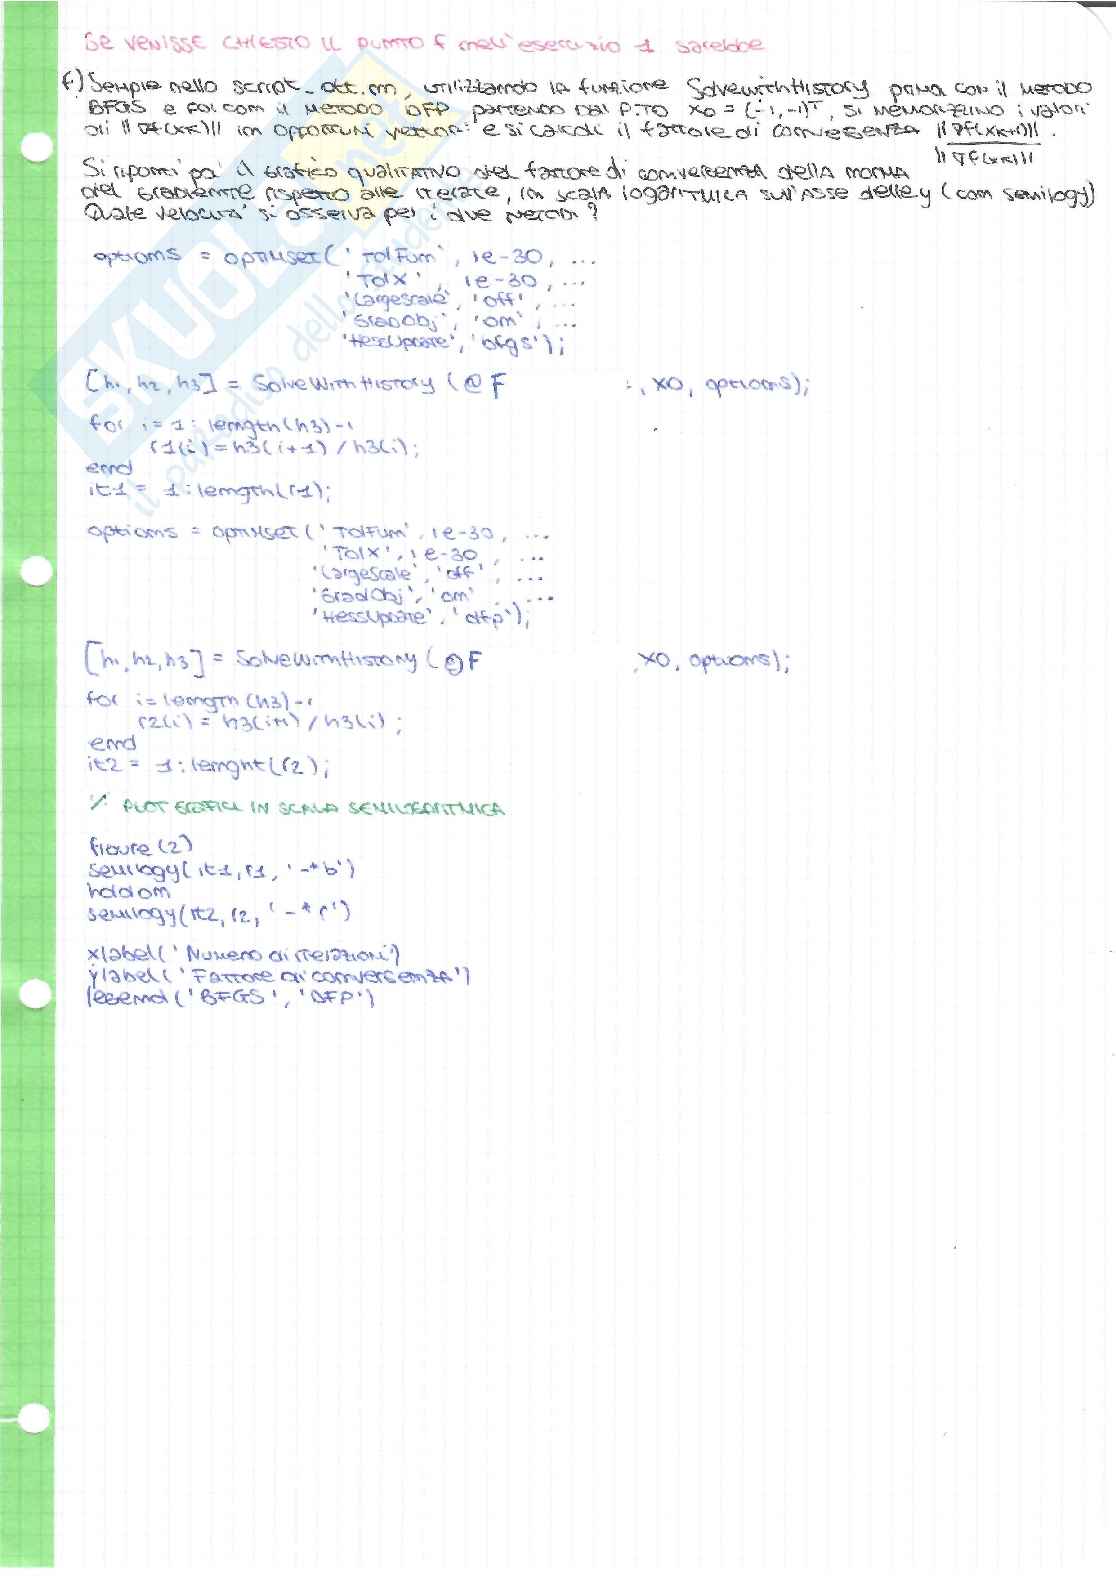 Se VENISSE CHIESTO IL PUNTO f nell'esercizio 1 sarebbe
f) Sempre nello script_ott.m, utilizzando la funzione SolvewithHistory prima con il metodo
BFGS e poi con il metodo DFP partendo dal P.TO x0 = (-1,-1)ᵀ, si memorizzino i valori
di ||∇f(xk)|| in opportuni vettori e si calcoli il fattore di convergenza ||∇f(xk+1)|| .
||∇f(xk)||
Si riporti poi il grafico qualitativo del fattore di convergenza della norma
del gradiente rispetto alle iterate, in scala logaritmica sull'asse delle y (con semilogy)
Quale velocità si osserva per i due metodi?
options = optimset('TolFun', 1e-30, ...
'TolX', 1e-30, ...
'LargeScale', 'off', ...
'GradObj', 'on', ...
'HessUpdate', 'bfgs');
[h1, h2, h3] = SolveWithHistory (@F , x0, options);
for i = 1: length(h3)-1
r1(i) = h3(i+1) / h3(i);
end
it1 = 1:length(r1);
options = optimset('TolFun', 1e-30, ...
'TolX', 1e-30, ...
'LargeScale', 'off', ...
'GradObj', 'on', ...
'HessUpdate', 'dfp');
[h1, h2, h3] = SolveWithHistory (@F , x0, options);
for i=length(h3)-1
r2(i) = h3(i+1) / h3(i);
end
it2 = 1:lenght(r2);
% PLOT GRAFICI IN SCALA SEMILOGARITMICA
figure (2)
semilogy(it1,r1, '-*b')
hold on
semilogy(it2, r2, '-*r')
xlabel('Numero di iterazioni')
ylabel('Fattore di convergenza')
legend('BFGS', 'DFP')
SKUOLA.net
il paradiso dello studente